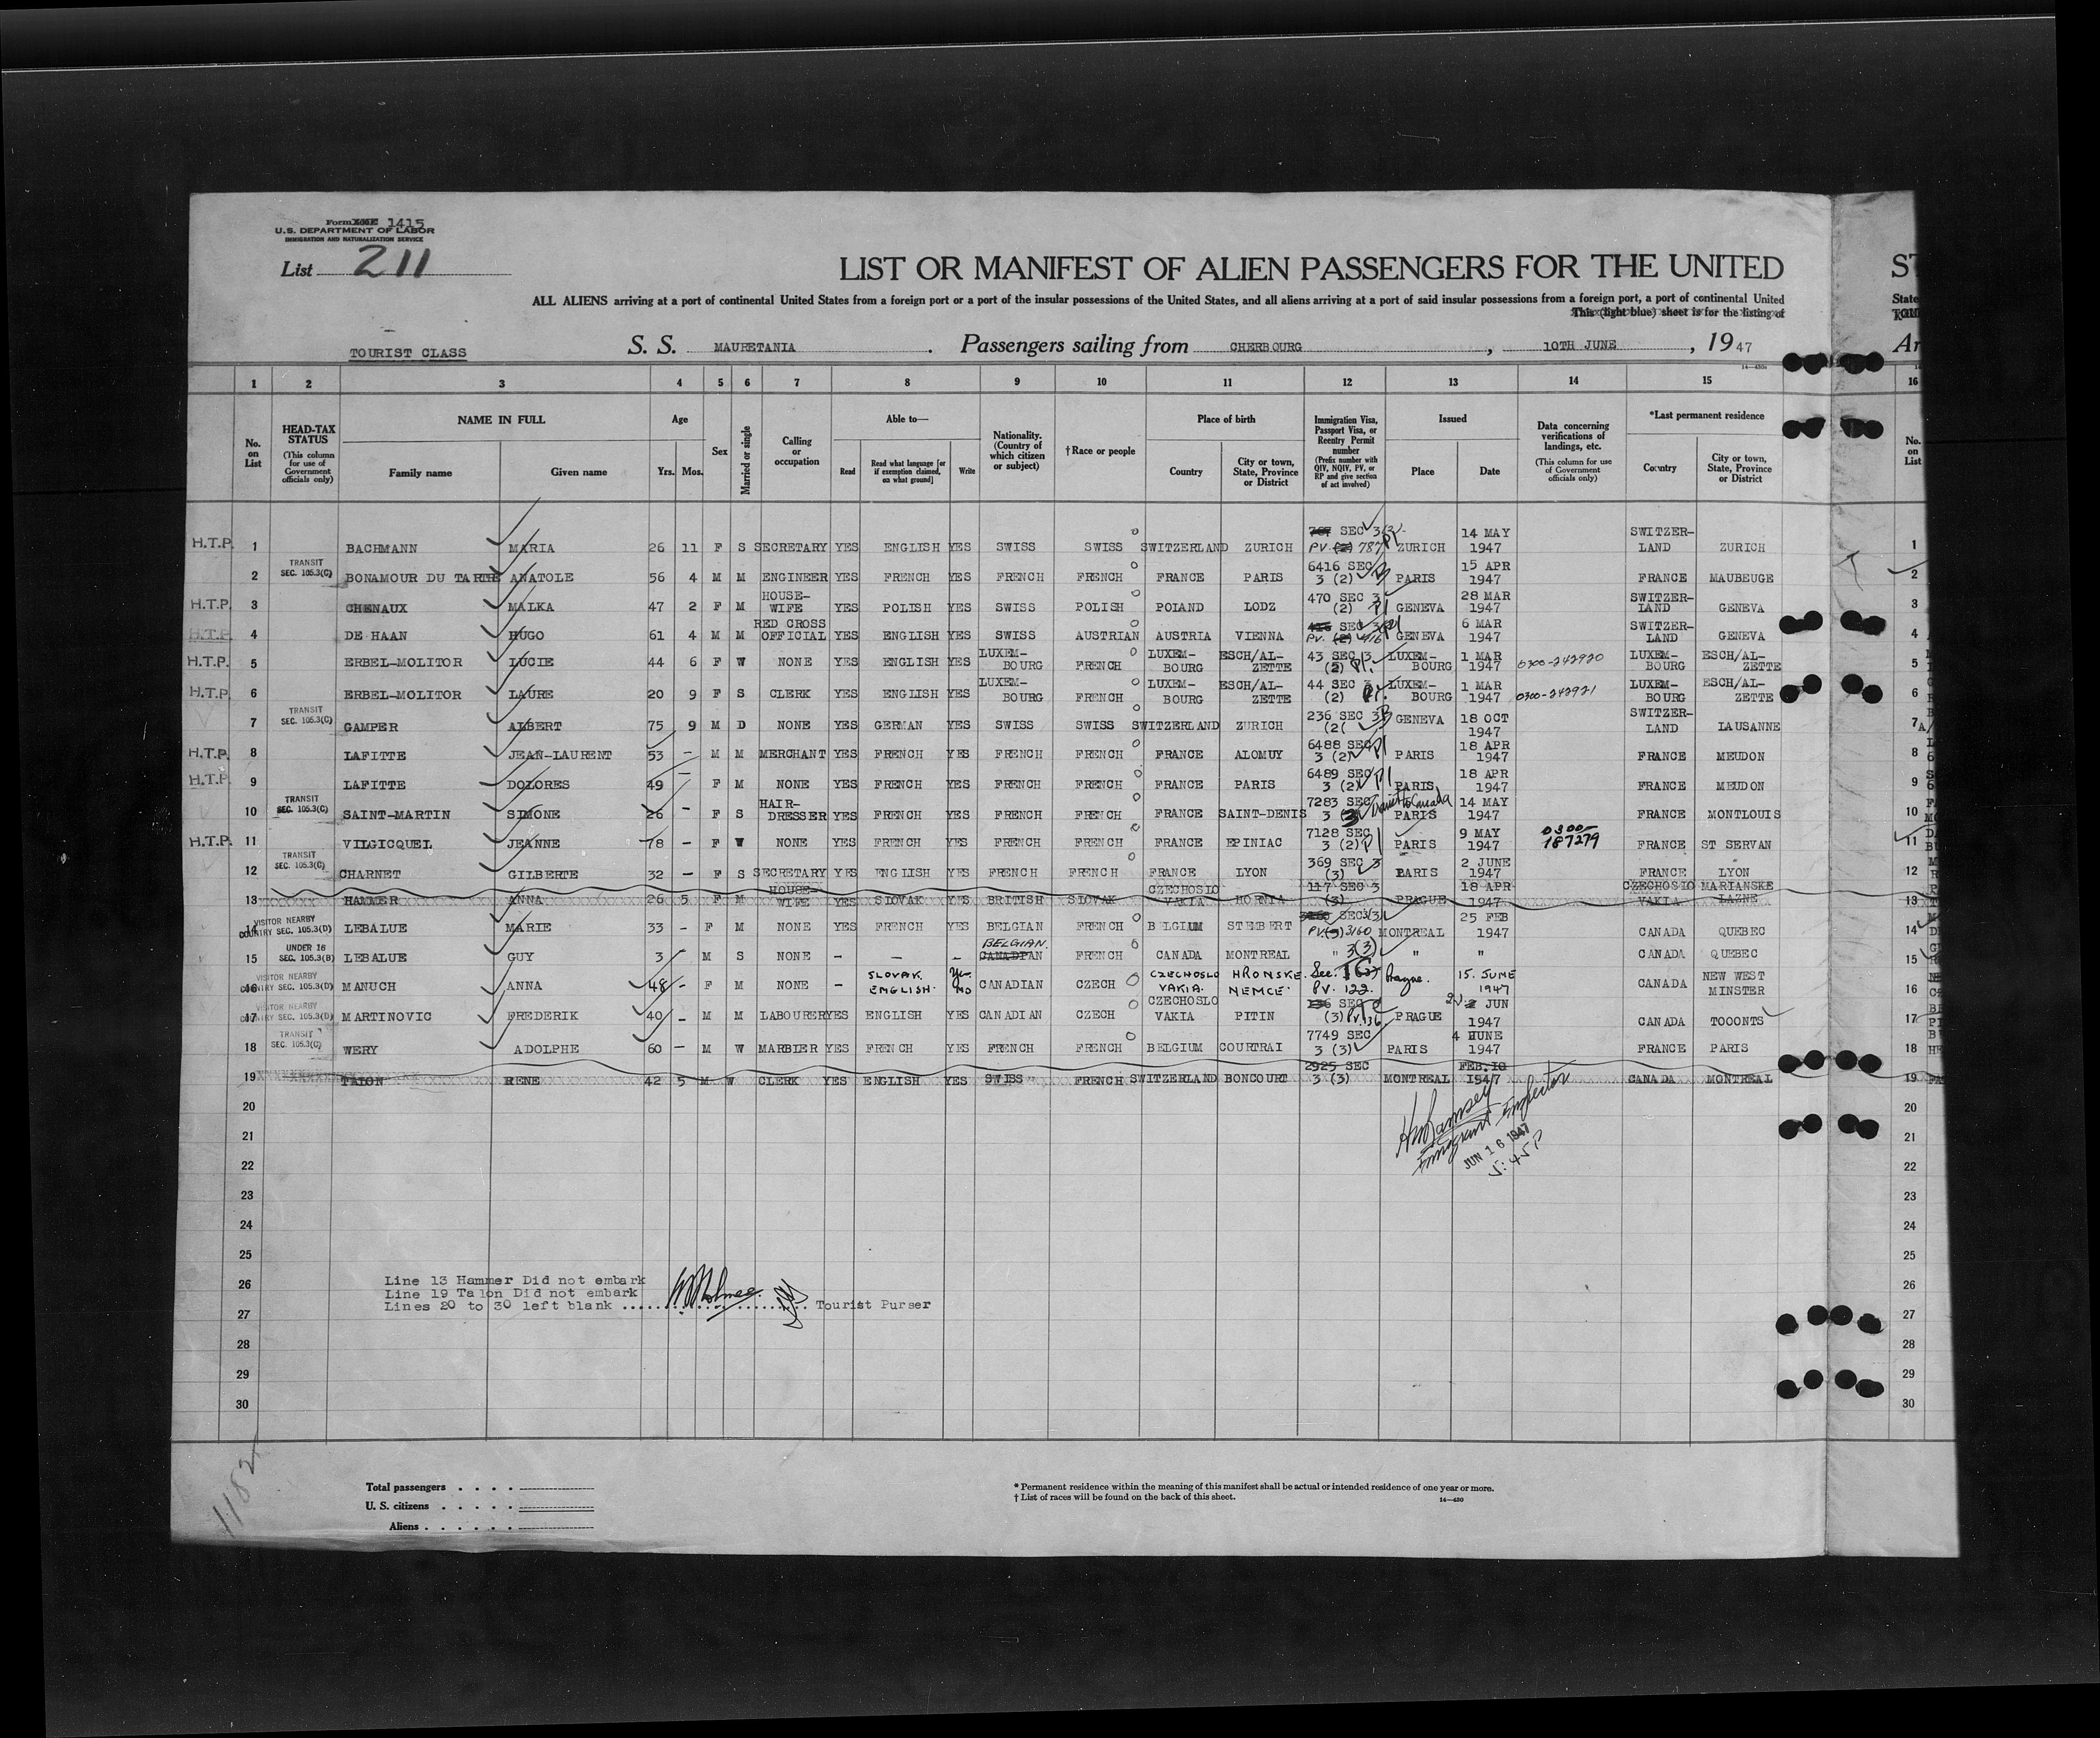 Form 1415
U.S. DEPARTMENT OF LABOR
IMMIGRATION AND NATURALIZATION SERVICE
List 211
LIST OR MANIFEST OF ALIEN PASSENGERS FOR THE UNITED ST
ALL ALIENS arriving at a port of continental United States from a foreign port or a port of the insular possessions of the United States, and all aliens arriving at a port of said insular possessions from a foreign port, a port of continental United State
This (light blue) sheet is for the listing of
TOURIST CLASS S. S. MAURETANIA . Passengers sailing from CHERBOURG , 10TH JUNE , 1947 Ar
1 2 3 4 5 6 7 8 9 10 11 12 13 14 15 16
No. on List HEAD-TAX STATUS (This column for use of Government officials only) NAME IN FULL Family name Given name Age Yrs. Mos. Sex Married or single Calling or occupation Able to— Read Read what language [or if exemption claimed, on what ground] Write Nationality. (Country of which citizen or subject) †Race or people Place of birth Country City or town, State, Province or District Immigration Visa, Passport Visa, or Reentry Permit number (Prefix number with QIV, NQIV, PV, or RP and give section of act involved) Issued Place Date Data concerning verifications of landings, etc. (This column for use of Government officials only) *Last permanent residence Country City or town, State, Province or District No. on List
H.T.P. 1 BACHMANN MARIA 26 11 F S SECRETARY YES ENGLISH YES SWISS SWISS SWITZERLAND ZURICH 767 SEC 3(2) PV (2) 787 ZURICH 14 MAY 1947 SWITZER- LAND ZURICH 1
2 TRANSIT SEC. 105.3(C) BONAMOUR DU TARTRE ANATOLE 56 4 M M ENGINEER YES FRENCH YES FRENCH FRENCH FRANCE PARIS 6416 SEC 3 (2) PARIS 15 APR 1947 FRANCE MAUBEUGE 2
H.T.P. 3 CHENAUX MALKA 47 2 F M HOUSE- WIFE YES POLISH YES SWISS POLISH POLAND LODZ 470 SEC 3 (2) GENEVA 28 MAR 1947 SWITZER- LAND GENEVA 3
H.T.P. 4 DE HAAN HUGO 61 4 M M RED CROSS OFFICIAL YES ENGLISH YES SWISS AUSTRIAN AUSTRIA VIENNA 416 SEC 3 PV. (2) 416 GENEVA 6 MAR 1947 SWITZER- LAND GENEVA 4
H.T.P. 5 ERBEL-MOLITOR LUCIE 44 6 F W NONE YES ENGLISH YES LUXEM- BOURG FRENCH LUXEM- BOURG ESCH/AL- ZETTE 43 SEC 3 (2) LUXEM- BOURG 1 MAR 1947 0300-242920 LUXEM- BOURG ESCH/AL- ZETTE 5
H.T.P. 6 ERBEL-MOLITOR LAURE 20 9 F S CLERK YES ENGLISH YES LUXEM- BOURG FRENCH LUXEM- BOURG ESCH/AL- ZETTE 44 SEC 3 (2) LUXEM- BOURG 1 MAR 1947 0300-242921 LUXEM- BOURG ESCH/AL- ZETTE 6
7 TRANSIT SEC. 105.3(C) GAMPER ALBERT 75 9 M D NONE YES GERMAN YES SWISS SWISS SWITZERLAND ZURICH 236 SEC 3 (2( GENEVA 18 OCT 1947 SWITZER- LAND LAUSANNE 7
H.T.P. 8 LAFITTE JEAN-LAURENT 53 – M M MERCHANT YES FRENCH YES FRENCH FRENCH FRANCE ALOMUY 6488 SEC 3 (2) PARIS 18 APR 1947 FRANCE MEUDON 8
H.T.P. 9 LAFITTE DOLORES 49 – F M NONE YES FRENCH YES FRENCH FRENCH FRANCE PARIS 6489 SEC 3 (2) PARIS 18 APR 1947 FRANCE MEUDON 9
10 TRANSIT SEC. 105.3(C) SAINT-MARTIN SIMONE 26 – F S HAIR- DRESSER YES FRENCH YES FRENCH FRENCH FRANCE SAINT-DENIS 7283 SEC 3 Transit to Canada PARIS 14 MAY 1947 FRANCE MONTLOUIS 10
H.T.P. 11 VILGICQUEL JEANNE 78 – F W NONE YES FRENCH YES FRENCH FRENCH FRANCE EPINIAC 7128 SEC 3 (2) PARIS 9 MAY 1947 0300- 187279 FRANCE ST SERVAN 11
12 TRANSIT SEC. 105.3(C) CHARNET GILBERTE 32 – F S SECRETARY YES ENGLISH YES FRENCH FRENCH FRANCE LYON 369 SEC 3 (3) PARIS 2 JUNE 1947 FRANCE LYON 12
13 HAMMER ANNA 26 5 F M HOUSE- WIFE YES SLOVAK YES BRITISH SLOVAK CZECHOSLO VAKIA HORNIA 117 SEC 3 (3) PRAGUE 18 APR 1947 CZECHOSLO VAKIA MARIANSKE LAZNE 13
14 VISITOR NEARBY COUNTRY SEC. 105.3(D) LEBALUE MARIE 33 – F M NONE YES FRENCH YES BELGIAN FRENCH BELGIUM STEMBERT 3160 SEC 3 PV(3) 3160 MONTREAL 25 FEB 1947 CANADA QUEBEC 14
15 UNDER 16 SEC. 105.3(B) LEBALUE GUY 3 M S NONE – – – BELGIAN. CANADIAN FRENCH CANADA MONTREAL " 3(3) " " CANADA QUEBEC 15
16 VISITOR NEARBY COUNTRY SEC. 105.3(D) MANUCH ANNA 48 – F M NONE – SLOVAK ENGLISH. Yes NO CANADIAN CZECH CZECHOSLO VAKIA. HRONSKE NEMCE. Sec. PV. 122. Prague. 15. JUNE 1947 CANADA NEW WEST MINSTER 16
17 VISITOR NEARBY COUNTRY SEC. 105.3(D) MARTINOVIC FREDERIK 40 – M M LABOURER YES ENGLISH YES CANADIAN CZECH CZECHOSLO VAKIA PITIN 136 SEC (3) PV.136 PRAGUE 2 JUN 1947 CANADA TOOONTS 17
18 TRANSIT SEC. 105.3(C) WERY ADOLPHE 60 – M W MARBIER YES FRENCH YES FRENCH FRENCH BELGIUM COURTRAI 7749 SEC 3 (3) PARIS 4 HUNE 1947 FRANCE PARIS 18
19 TALON RENE 42 5 M W CLERK YES ENGLISH YES SWISS FRENCH SWITZERLAND BONCOURT 2925 SEC 3 (3) MONTREAL FEB.10 1947 CANADA MONTREAL 19
20 20
21 Immigrant Inspector JUN 16 1947 5:45P 21
22 22
23 23
24 24
25 25
26 Line 13 Hammer Did not embark 26
Line 19 Talon Did not embark
27 Lines 20 to 30 left blank Tourist Purser 27
28 28
29 29
30 30
1182
Total passengers . . . .
U. S. citizens . . . . .
Aliens . . . . . .
* Permanent residence within the meaning of this manifest shall be actual or intended residence of one year or more.
† List of races will be found on the back of this sheet. 14—430